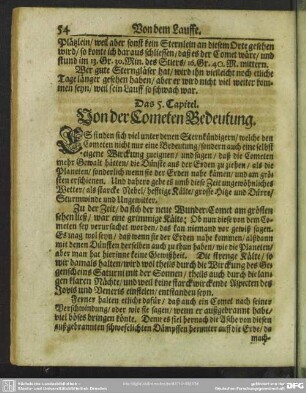 54 Von dem Lauffe.
Pläßlein/ weil aber sonst kein Sternlein an diesem Orte gesehen
wird/ so konte ich dar aus schliessen/ daß es der Comet wäre/ und
stund im 13. Gr. 30. Min. des Stiers/ 16. Gr. 40. M. mittern.
Wer gute Sterngläser hat/ wird ihn vielleicht noch etliche
Tage länger gesehen haben/ aber er wird nicht viel weiter kom-
men seyn/ weil sein Lauff so schwach war.
Das 5. Capitel.
Von der Cometen Bedeutung.
ES finden sich viel unter denen Sternkündigern/ welche den
Cometen nicht nur eine Bedeutung/ sondern auch eine selbst
eigene Werckung zueignen/ und sagen/ daß die Cometen
mehr Gewalt hätten/ die Dünste aus der Erden zu ziehen/ als die
Planeten/ sonderlich wenn sie der Erden nahe kämen/ und am grös-
sten erschienen. Und dahero gebe es umb diese Zeit ungewöhnliches
Wetter/ als starcke Nebel/ hefftige Kälte/ grosse Hitze und Dürre/
Sturmwinde und Ungewitter.
Zu der Zeit/ da sich der neue Wunder-Comet am grösten
sehen ließ/ war eine grimmige Kälte; Ob nun diese von dem Co-
meten sey verursachet worden/ das kan niemand vor gewiß sagen.
Es mag wol seyn/ daß wenn sie der Erden nahe kommen/ alsdann
mit denen Dünsten derselben auch zu thun haben/ wie die Planeten/
aber man hat hierinne keine Gewißheit. Die strenge Kälte/ so
wir damals hatten/ wird wol theils durch die Wirckung des Ge-
genscheins Saturni mit der Sonnen/ theils auch durch die langen
klaren Nächte/ und weil keine starckwirckende Aspecten des
Jovis und Veneris einfielen/ entstanden seyn.
Ferner halten etliche dafür/ daß auch ein Comet nach seiner
Verschwindung/ oder wie sie sagen/ wenn er außgebrannt habe/
viel böses bringen könte. Denn es fiel hernach die Asche von diesen
außgebrannten schwefelichten Dämpffen herunter auff die Erde/ da
mach-